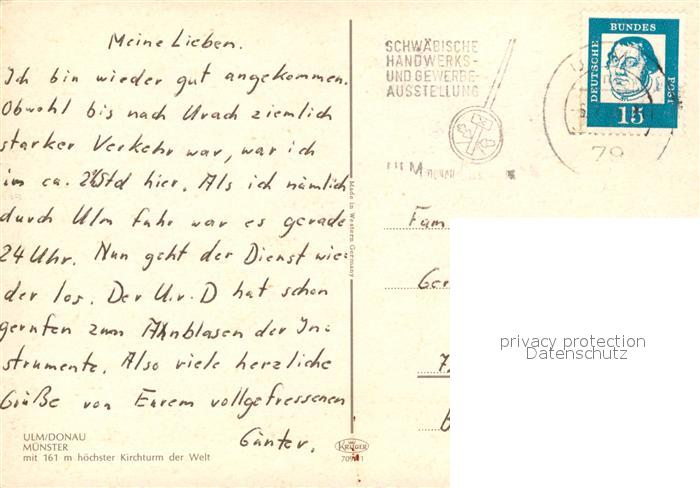 Meine Lieben.
Ich bin wieder gut angekommen.
Obwohl bis nach Urach ziemlich
starker Verkehr war, war ich
im ca. Std hier. Als ich nämlich
durch Ulm fuhr war es gerade
24 Uhr. Nun geht der Dienst wie-
der los. Der U.v.D hat schon
gerufen zum Ahnblasen der In-
strumente. Also viele herzliche
Grüße von Eurem vollgefressenen
Günter.
ULM/DONAU
MÜNSTER
mit 161 m höchster Kirchturm der Welt
Made in Western Germany
KRÜGER
SCHWÄBISCHE
HANDWERKS-
UND GEWERBE-
AUSSTELLUNG
ULM
79
DEUTSCHE
BUNDES
POST
15
Fam
Ger
privacy protection
Datenschutz